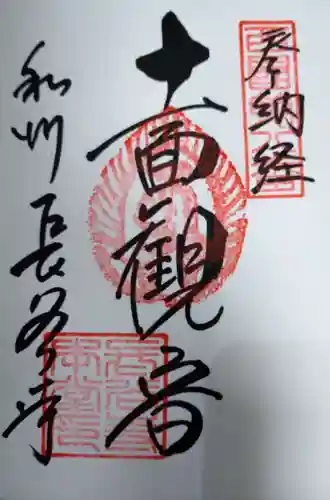 奉納経
十一面観音
和州長谷寺